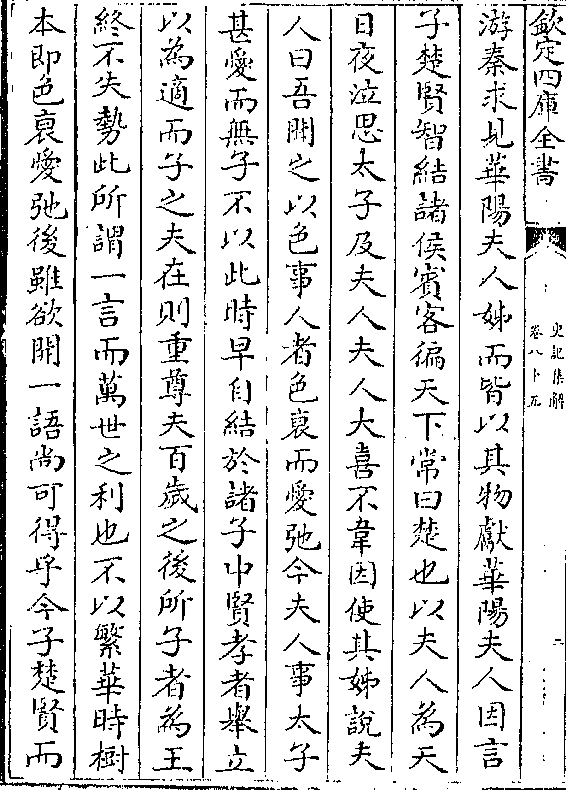 欽定四庫全書
史記集解
卷八十五
二
游秦求見華陽夫人姊而皆以其物獻華陽夫人因言
子楚賢智結諸侯賓客徧天下常曰楚也以夫人為天
日夜泣思太子及夫人夫人大喜不韋因使其姊說夫
人曰吾聞之以色事人者色衰而愛弛今夫人事太子
甚愛而無子不以此時早自結於諸子中賢孝者舉立
以為適而子之夫在則重尊夫百歲之後所子者為王
終不失勢此所謂一言而萬世之利也不以繁華時樹
本即色衰愛弛後雖欲開一語尚可得乎今子楚賢而